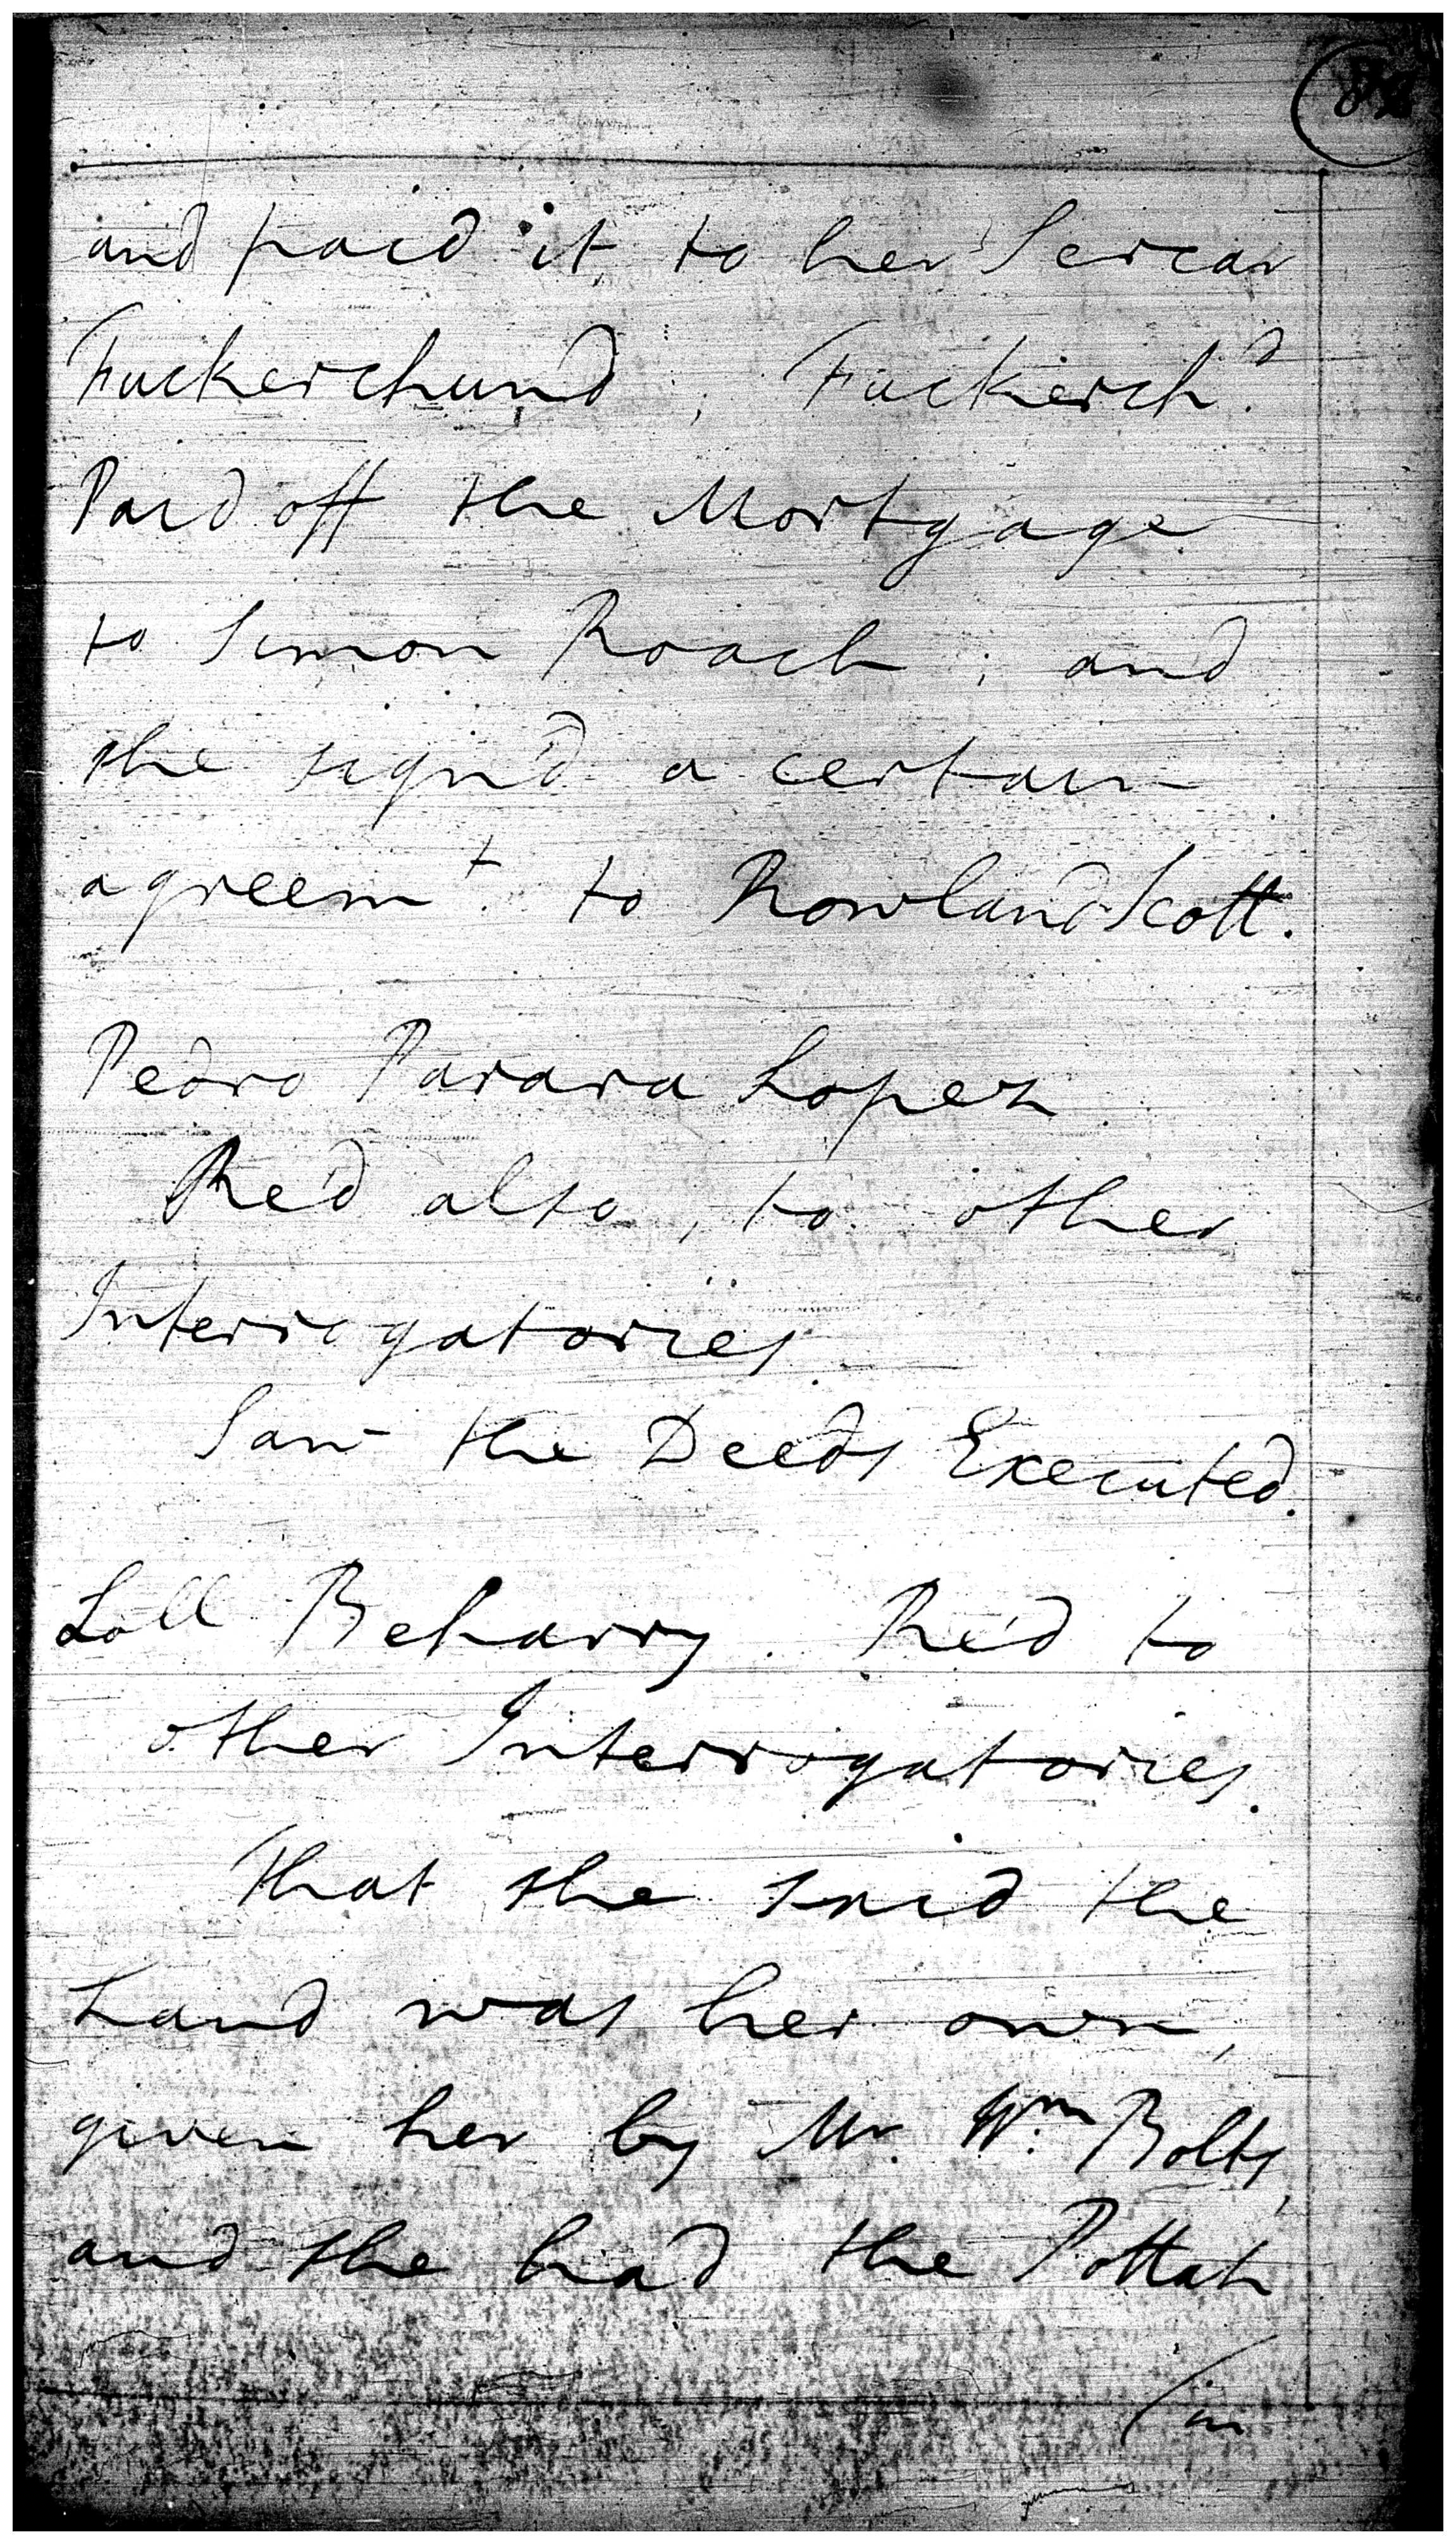 and paid it to her Sercar
Fuckerchund; Fuckerch.d
Paid off the Mortgage
to Simon Roach; and
she sign'd a certain
agreem.t to Rowland Scott.
Pedro Parara Lopez
Re'd also, to other
Interrogatories.
Saw the Deeds Executed.
Loll Beharry. Re'd to
other Interrogatories.
That she said the
Land was her own,
given her by Mr. W.m Bolts,
and she had the Pottah
(in